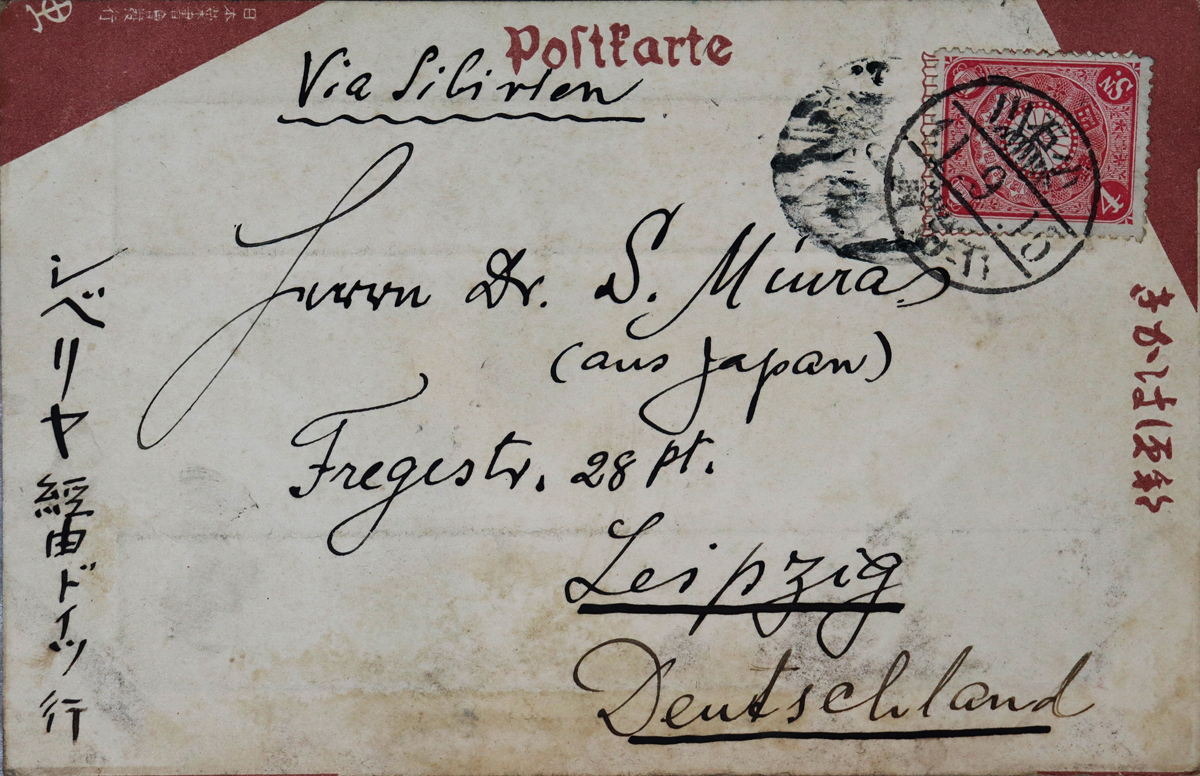 日本葉書會發行
Postkarte
Via Sibirien
Herrn Dr. S. Miura
(aus Japan)
Fregestr. 28 pt.
Leipzig
Deutschland
シベリヤ経由ドイツ行
きかはは便郵
4 Sn.